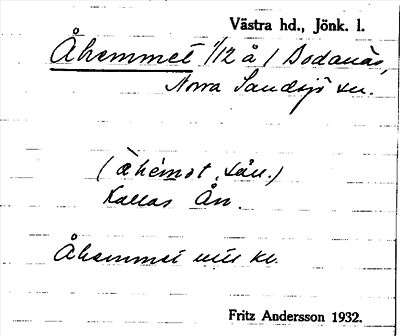 Västra hd., Jönk. l.
Åhemmet 1/12 å 1 Bodanäs,
Norra Sandsjö sn.
Kallas Ån.
Åhemmet
Fritz Andersson 1932.